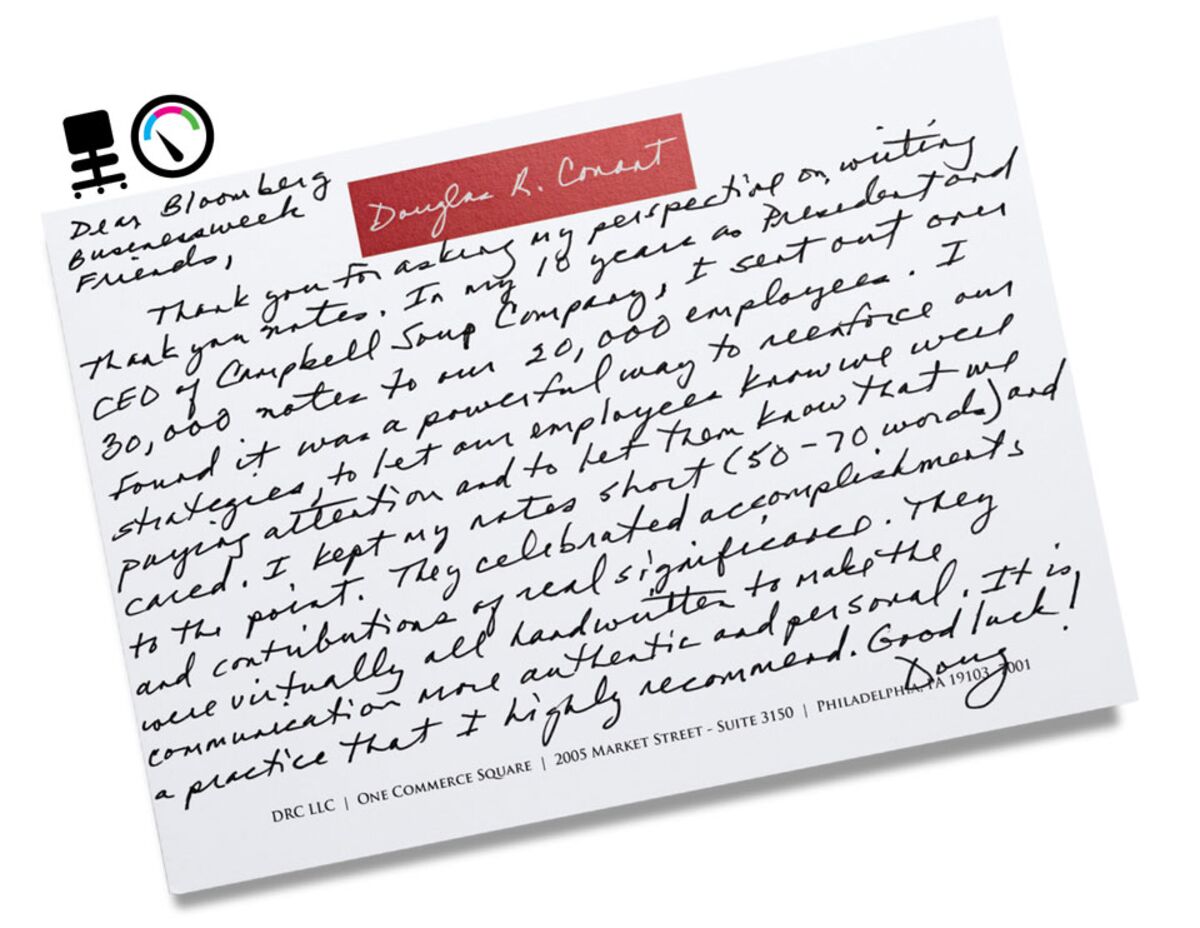 Douglas R. Conant
Dear Bloomberg
Businessweek
Friends,
Thank you for asking my perspective on writing
thank you notes. In my 10 years as President and
CEO of Campbell Soup Company, I sent out over
30,000 notes to our 20,000 employees. I
found it was a powerful way to reenforce our
strategies, to let our employees know we were
paying attention and to let them know that we
cared. I kept my notes short (50-70 words) and
to the point. They celebrated accomplishments
and contributions of real significance. They
were virtually all handwritten to make the
communication more authentic and personal. It is
a practice that I highly recommend. Good luck!
Doug
DRC LLC | One Commerce Square | 2005 Market Street - Suite 3150 | Philadelphia, PA 19103-7001